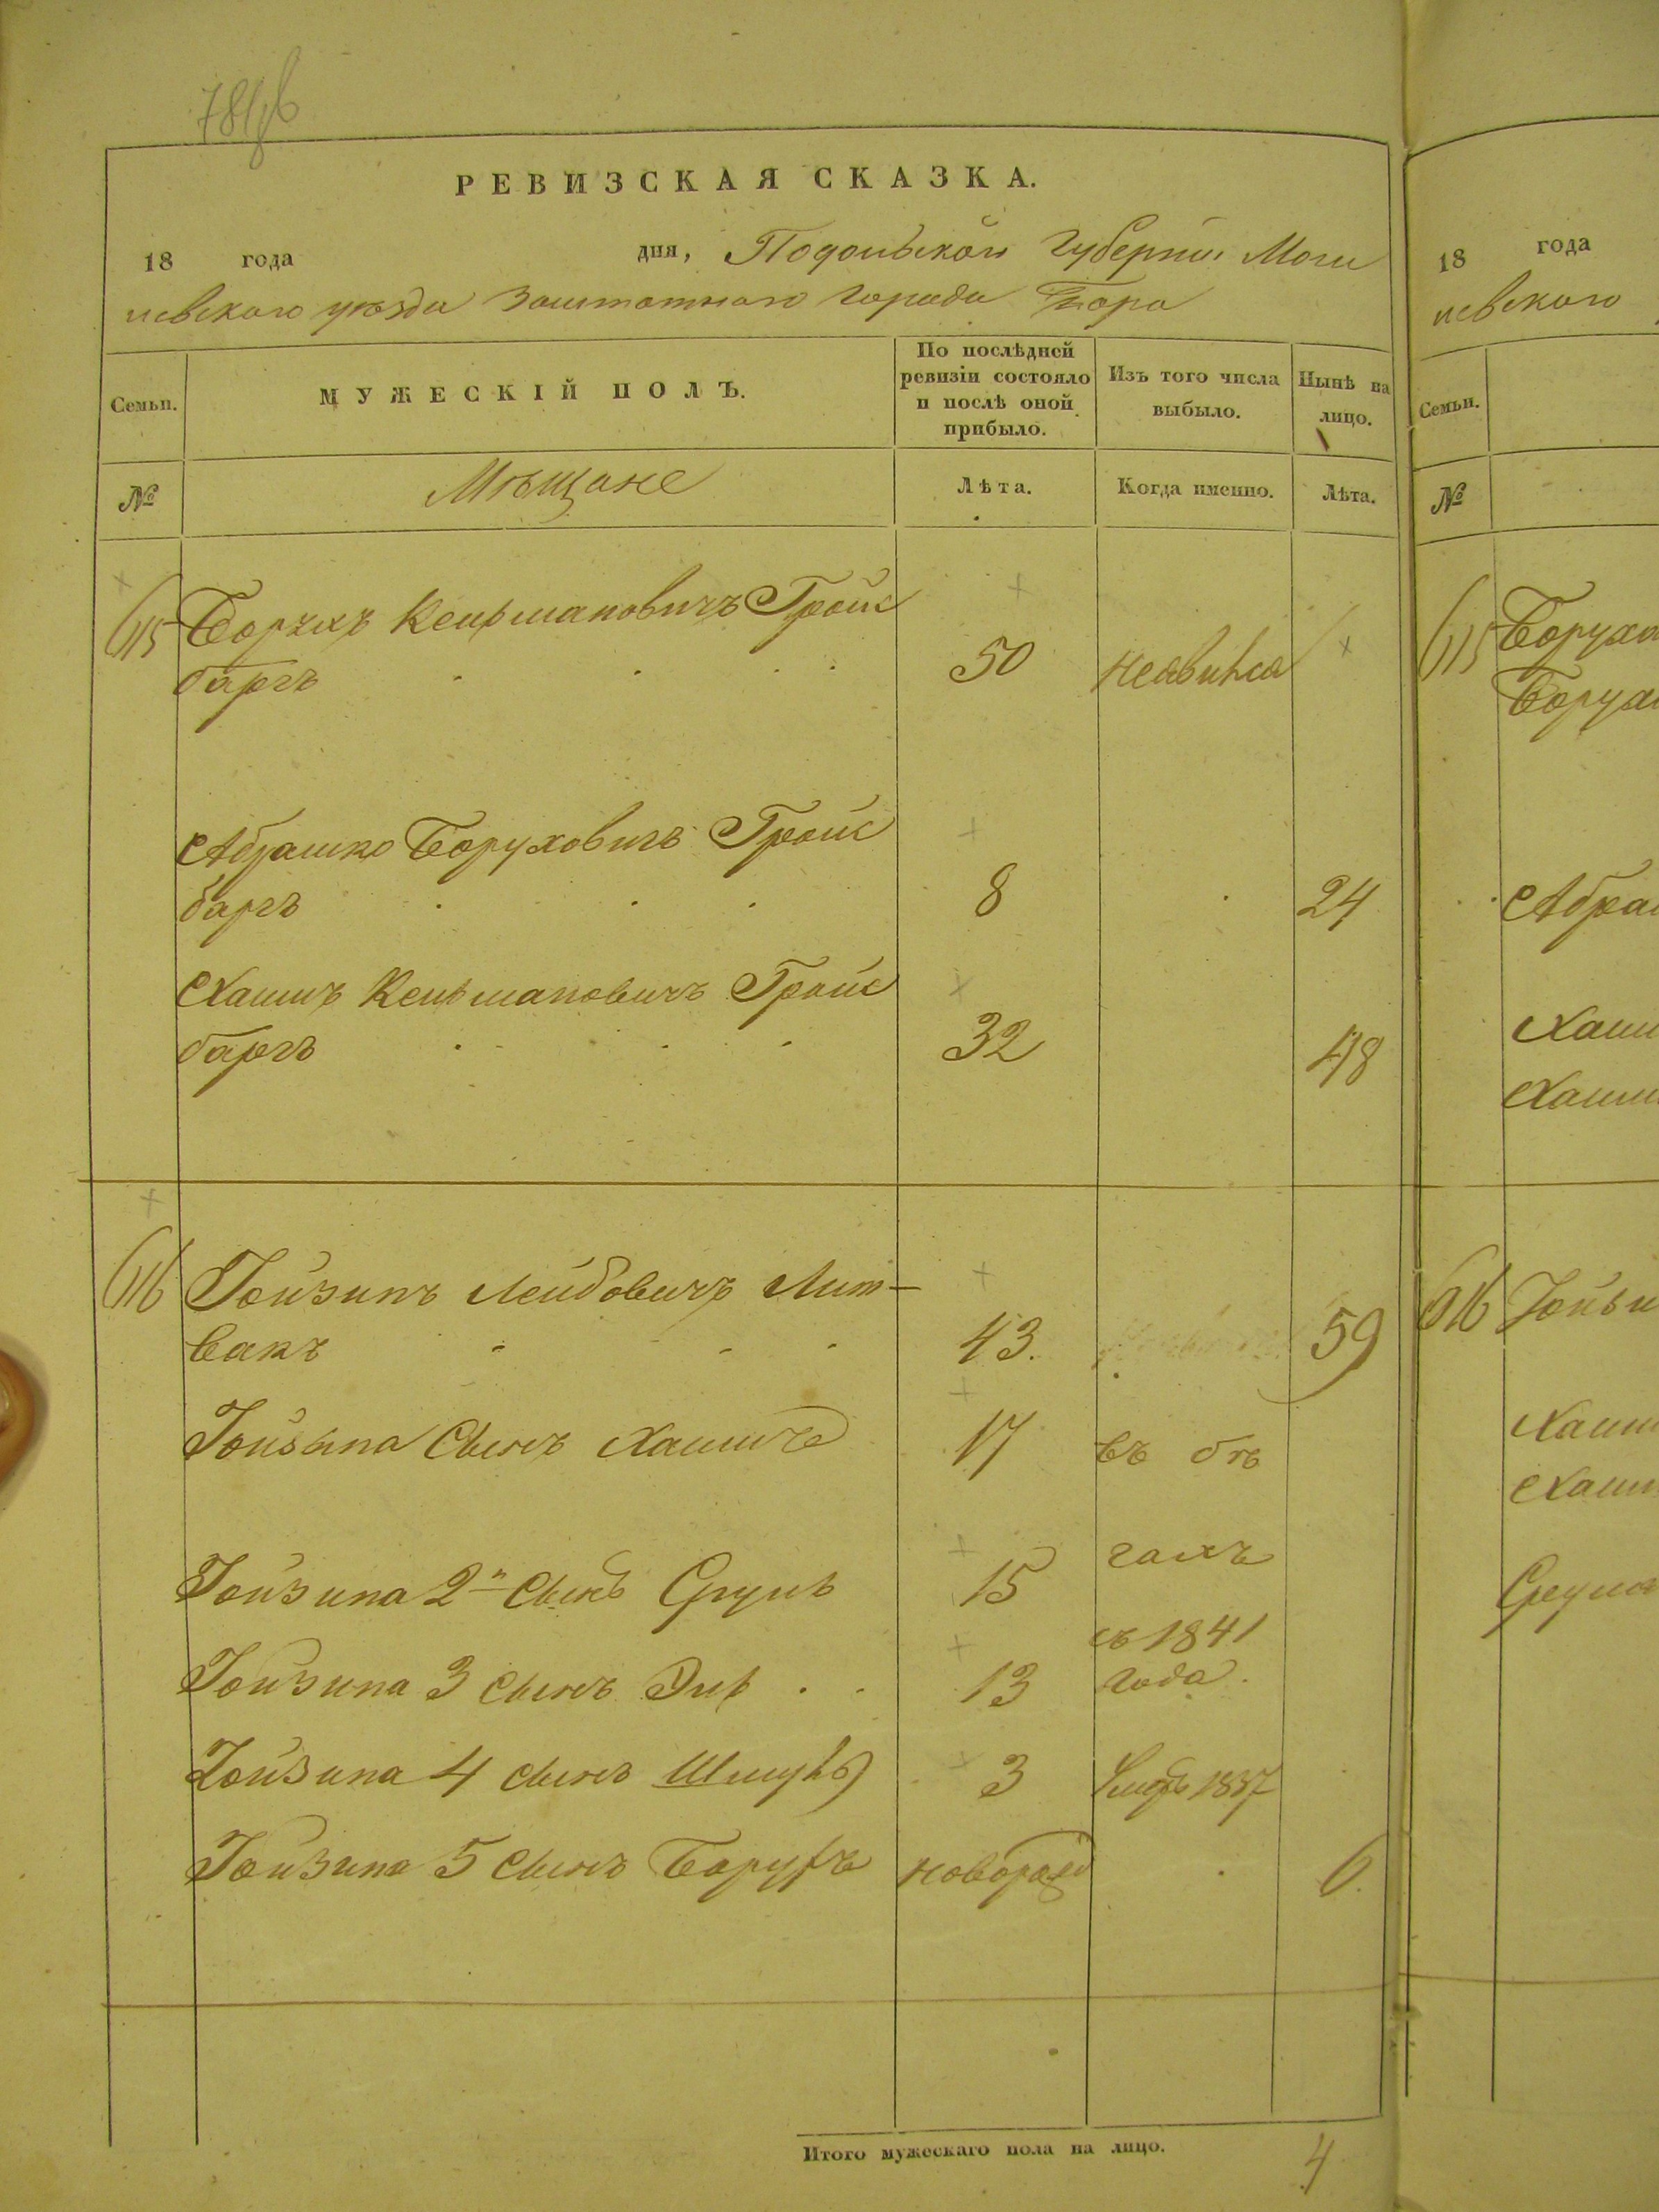 781 об
РЕВИЗСКАЯ СКАЗКА.
18 года дня, Подольской Губерніи Моги
левского уѣзда Заштатного Города Бара
Семьи.
МУЖЕСКІЙ ПОЛЪ.
По послѣдней ревизіи состояло и послѣ оной прибыло.
Изъ того числа выбыло.
Нынѣ на лицо.
№
Мѣщане
Лѣта.
Когда именно.
Лѣта.
615 Борухъ Кельмановичъ Гройс
баргъ 50 неявился
Абрашко Боруховичъ Гройс
баргъ 8 24
Хаимъ Кельмановичъ Гройс
баргъ 32 48
616 Іойзипъ Лейбовичъ Лит-
вакъ 43. 59
Іойзипа Сынъ Хаимъ 17 въ бѣ
гахъ
Іойзипа 2й Сынъ Сруль 15
съ 1841
Іойзипа 3 сынъ 13 года.
Іойзипа 4 сынъ Шмуль 3 Умеръ 1837
Іойзипа 5 сынъ Борухъ новорожд 6.
Итого мужескаго пола на лицо. 4
18 года
левского
Семьи.
№
615 Боруха
Хаим
Хаим
616 Іойзи
Хаим
Хаим